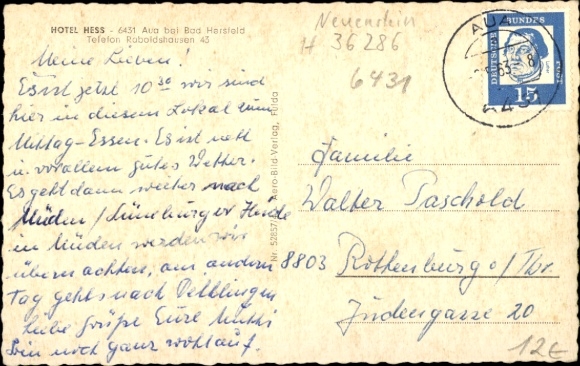 HOTEL HESS - 6431 Aua bei Bad Hersfeld
Telefon Raboldshausen 43
Neuenstein
H 36286
6431
AUA
DEUTSCHE BUNDESPOST
15
Meine Lieben!
Es ist jetzt 10³⁰ wir sind
hier in diesem Lokal zum
Mittag-Essen. Es ist nett
u. vorallem gutes Wetter.
Es geht dann weiter nach
Müden / Lüneburger Heide
in Müden werden wir
übernachten, am andern
Tag gehts nach
liebe Grüße Eure Mutti
bin noch ganz wohlauf.
Nr. 52857 Aero-Bild-Verlag, Fulda
Familie
Walter Paschold
8803 Rothenburg o/Tbr.
Judengasse 20
12€